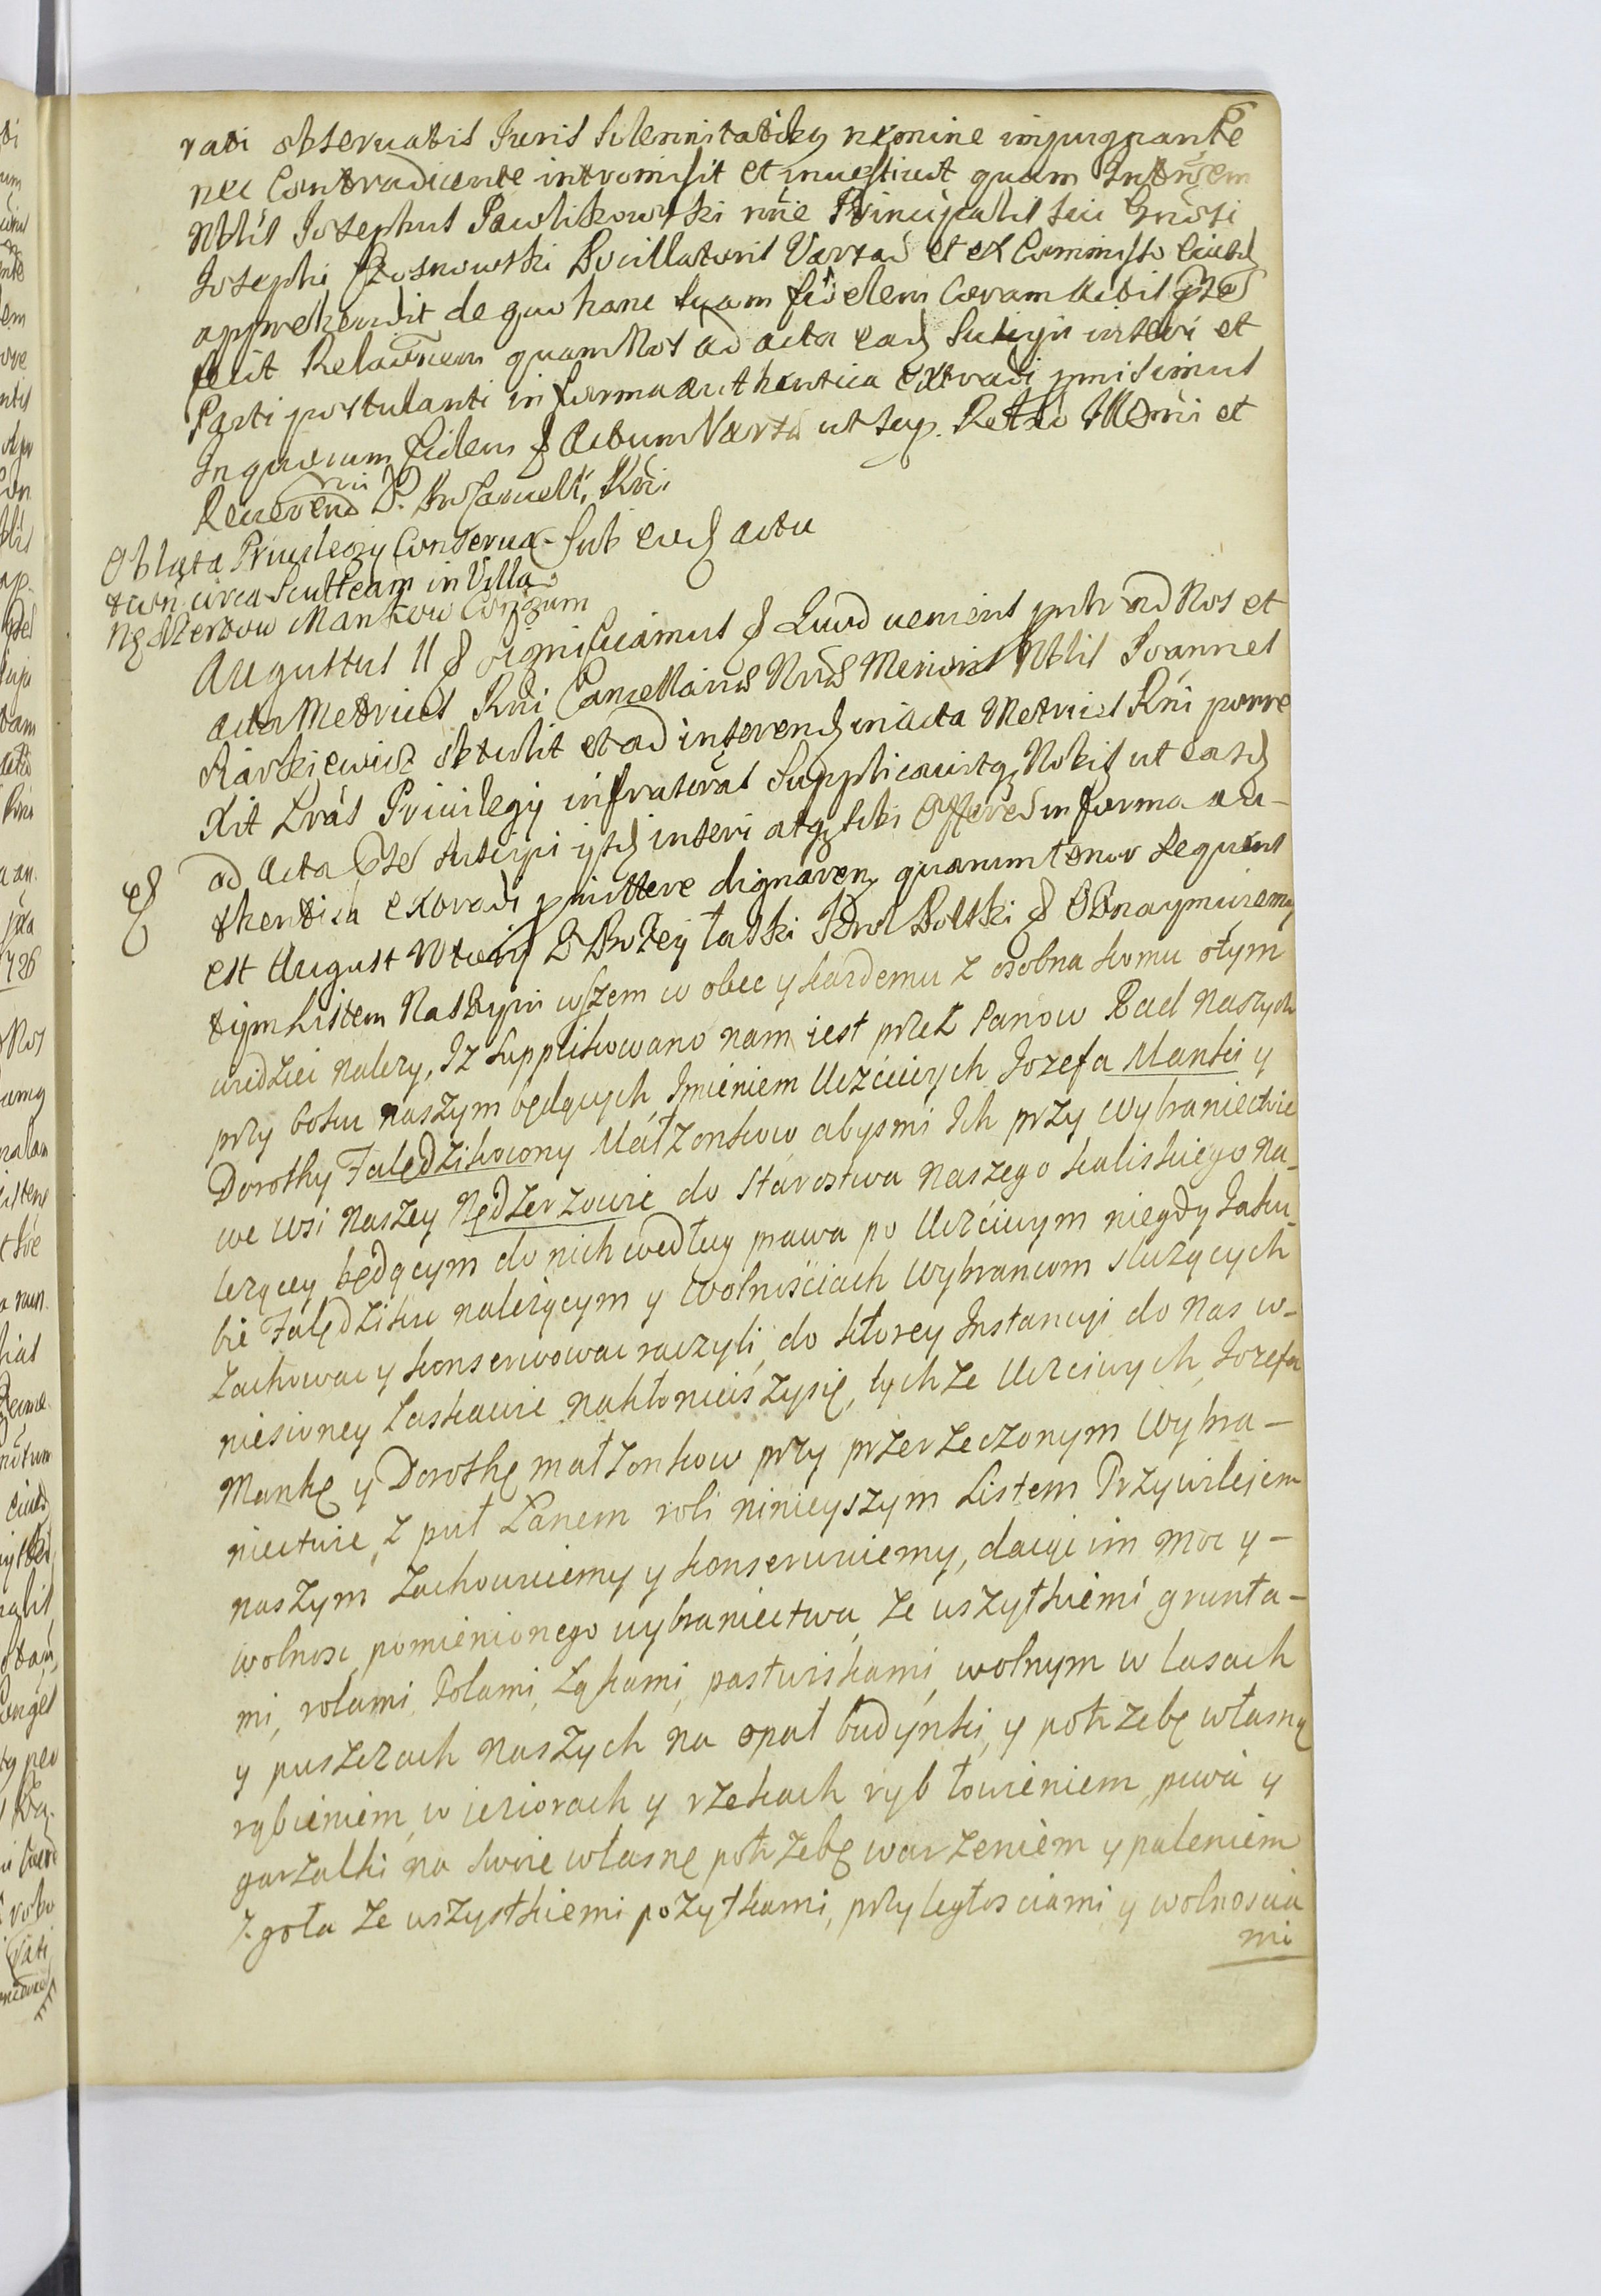 6
rati observatis Juris Solennitatibq nemine impugnante
nec Contradicente intromisit et investivit quam Intromsem
Nblis Josephus Pawlikowski nne Principalis sui Gnosi
Josephi Rosnowski Pocillatoris Varsav et ex Commisso eiusd
apprehendit de quo hanc suam fidelem Coram Actis ptbs
fecit Relatnem quam Nos ad acta ead suscipi inseri et
Parti postulanti in forma authentica extradi pmisimus
In quorum fidem & Actum Varsa ut sup. Retro
Reverend P.
Oblata Privilegy Conserva- Sub eod actu
tion circa Sculteam in Villa
Nędzerzow Mankow Conjgum
Augustus II & significamus & Quod veniens pnlr ad Nos et
acta Metrices Rni Cancellaria Nras Nblis Joannes
obtulit et ad inserend in Acta Metrices Rni porre
xit Lras Privilegy infrascras Supplicavitq Nobis ut easd
ad Acta ptes suscipi ysd inseri atq sibi in forma au-
thentica extradi pmittere dignaren quarum tenor sequens
est August Wtory Z Bożey łaski Krol Polski & Oznaymuiemy
tym Listem Naszym wszem w obec y kazdemu z osobna komu o tym
widziec nalezy, Iz supplikowano nam iest przez Panow Rad naszych
przy boku naszym będących, Imieniem Uczciwych Jozefa Manki y
Dorothy Falędzikowny Małzonkow abysmi Ich przy Wybraniectwie
we wsi naszey Nędzerzowie do Starostwa naszego kaliskiego na-
lezącey będącym do nich według prawa po Uczciwym niegdy Jaku-
bie Falędziku nalezącym y wolnościach Wybrancom słuzących
zachowac y konserwowac raczyli, do ktorey Instancyi do nas w-
niesioney Laskawie nakłoniwszysię, tychze Uczciwych, Jozefa
Mankę y Dorothę małzonkow przy przerzeczonym Wybra-
niectwie, z puł Łanem roli ninieyszym Listem Przywilejem
naszym zachowuiemy y konserwuiemy, daiąc im moc y-
wolnosc pomienionego wybraniectwa, ze wszytkiemi grunta-
mi, rolami, Polami, Łąkami, pastwiskami, wolnym w lasach
y puszczach naszych na opał budynki, y potrzebę własną
rąbieniem, w ieziorach y rzekach ryb łowieniem, piwa y
gorzałki na swoie własnę potrzebę warzeniem y paleniem
zgoła ze wszystkiemi pozytkami, przyległosciami y wolnoscia
mi